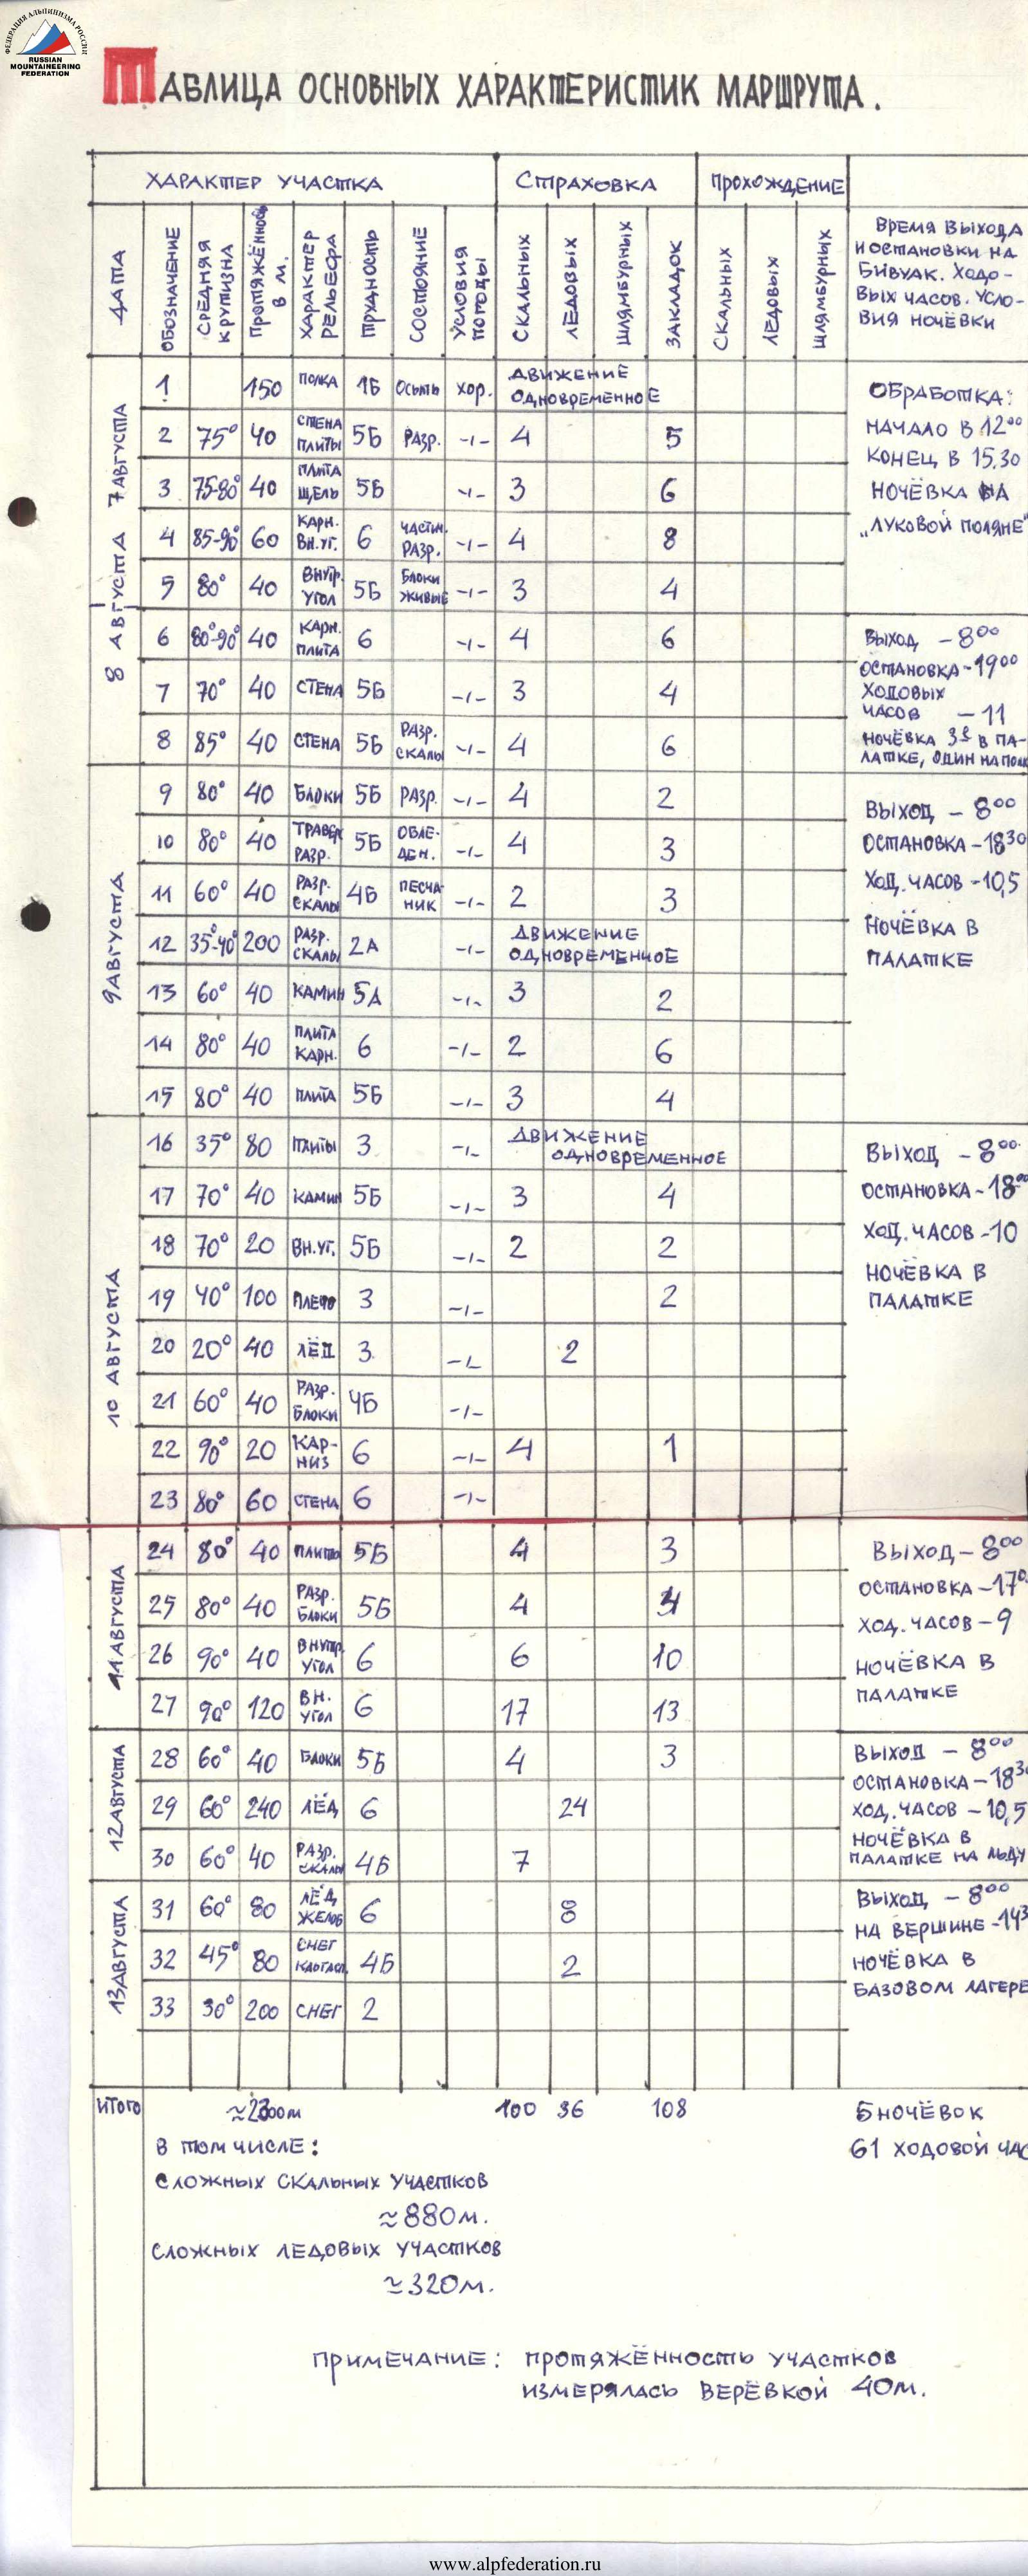 ФЕДЕРАЦИЯ АЛЬПИНИЗМА РОССИИ
RUSSIAN
MOUNTAINEERING
FEDERATION
ТАБЛИЦА ОСНОВНЫХ ХАРАКТЕРИСТИК МАРШРУТА.
ХАРАКТЕР УЧАСТКА СТРАХОВКА ПРОХОЖДЕНИЕ
ДАТА ОБОЗНАЧЕНИЕ СРЕДНЯЯ КРУТИЗНА ПРОТЯЖЁННОСТЬ В М. ХАРАКТЕР РЕЛЬЕФА ТРУДНОСТЬ СОСТОЯНИЕ УСЛОВИЯ ПОГОДЫ СКАЛЬНЫХ ЛЕДОВЫХ ШЛЯМБУРНЫХ ЗАКЛАДОК СКАЛЬНЫХ ЛЕДОВЫХ ШЛЯМБУРНЫХ
ВРЕМЯ ВЫХОДА
И ОСТАНОВКИ НА
БИВУАК. ХОДО-
ВЫХ ЧАСОВ. УСЛО-
ВИЯ НОЧЁВКИ
7 АВГУСТА
1 150 ПОЛКА 1Б ОСЫПЬ ХОР. ДВИЖЕНИЕ ОДНОВРЕМЕННОЕ
2 75° 40 СТЕНА ПЛИТЫ 5Б РАЗР. -"- 4 5
3 75-80° 40 ПЛИТА ЩЕЛЬ 5Б -"- 3 6
4 85-90° 60 КАРН. ВН.УГ. 6 ЧАСТИЧ. РАЗР. -"- 4 8
5 80° 40 ВНУТР. УГОЛ 5Б БЛОКИ ЖИВЫЕ -"- 3 4
ОБРАБОТКА:
НАЧАЛО В 12⁰⁰
КОНЕЦ В 15.30
НОЧЁВКА НА
„ЛУКОВОЙ ПОЛЯНЕ"
8 АВГУСТА
6 80°-90° 40 КАРН. ПЛИТА 6 -"- 4 6
7 70° 40 СТЕНА 5Б -"- 3 4
8 85° 40 СТЕНА 5Б РАЗР. СКАЛЫ -"- 4 6
ВЫХОД - 8⁰⁰
ОСТАНОВКА - 19⁰⁰
ХОДОВЫХ
ЧАСОВ - 11
НОЧЁВКА 3Е В ПА-
ЛАТКЕ, ОДИН НА
9 АВГУСТА
9 80° 40 БЛОКИ 5Б РАЗР. -"- 4 2
10 80° 40 ТРАВЕРС РАЗР. 5Б ОБЛЕ- ДЕН. -"- 4 3
11 60° 40 РАЗР. СКАЛЫ 4Б ПЕСЧА- НИК -"- 2 3
12 35°-40° 200 РАЗР. СКАЛЫ 2А -"- ДВИЖЕНИЕ ОДНОВРЕМЕННОЕ
13 60° 40 КАМИН 5А -"- 3 2
14 80° 40 ПЛИТА КАРН. 6 -"- 2 6
15 80° 40 ПЛИТА 5Б -"- 3 4
ВЫХОД - 8⁰⁰
ОСТАНОВКА - 18³⁰
ХОД. ЧАСОВ - 10,5
НОЧЁВКА В
ПАЛАТКЕ
10 АВГУСТА
16 35° 80 ПЛИТЫ 3 -"- ДВИЖЕНИЕ ОДНОВРЕМЕННОЕ
17 70° 40 КАМИН 5Б -"- 3 4
18 70° 20 ВН.УГ. 5Б -"- 2 2
19 40° 100 ПЛЕЧО 3 -"- 2
20 20° 40 ЛЁД 3 -"- 2
21 60° 40 РАЗР. БЛОКИ 4Б -"-
22 90° 20 КАР- НИЗ 6 -"- 4 1
23 80° 60 СТЕНА 6 -"-
ВЫХОД - 8⁰⁰
ОСТАНОВКА - 18⁰⁰
ХОД. ЧАСОВ - 10
НОЧЁВКА В
ПАЛАТКЕ
11 АВГУСТА
24 80° 40 ПЛИТЫ 5Б 4 3
25 80° 40 РАЗР. БЛОКИ 5Б 4
26 90° 40 ВНУТР. УГОЛ 6 6 10
27 90° 120 ВН. УГОЛ 6 17 13
ВЫХОД - 8⁰⁰
ОСТАНОВКА - 17⁰
ХОД. ЧАСОВ - 9
НОЧЁВКА В
ПАЛАТКЕ
12 АВГУСТА
28 60° 40 БЛОКИ 5Б 4 3
29 60° 240 ЛЁД 6 24
30 60° 40 РАЗР. СКАЛЫ 4Б 7
ВЫХОД - 8⁰⁰
ОСТАНОВКА - 18³⁰
ХОД. ЧАСОВ - 10,5
НОЧЁВКА В
ПАЛАТКЕ НА ЛЬДУ
13 АВГУСТА
31 60° 80 ЛЁД ЖЕЛОБ 6 8
32 45° 80 СНЕГ 4Б 2
33 30° 200 СНЕГ 2
ВЫХОД - 8⁰⁰
НА ВЕРШИНЕ - 14³
НОЧЁВКА В
БАЗОВОМ ЛАГЕРЕ
ИТОГО ≈2300м 100 36 108 5 НОЧЁВОК
61 ХОДОВОЙ ЧАС
В ТОМ ЧИСЛЕ:
СЛОЖНЫХ СКАЛЬНЫХ УЧАСТКОВ
≈880м.
СЛОЖНЫХ ЛЕДОВЫХ УЧАСТКОВ
≈320м.
ПРИМЕЧАНИЕ: ПРОТЯЖЁННОСТЬ УЧАСТКОВ
ИЗМЕРЯЛАСЬ ВЕРЁВКОЙ 40м.
www.alpfederation.ru